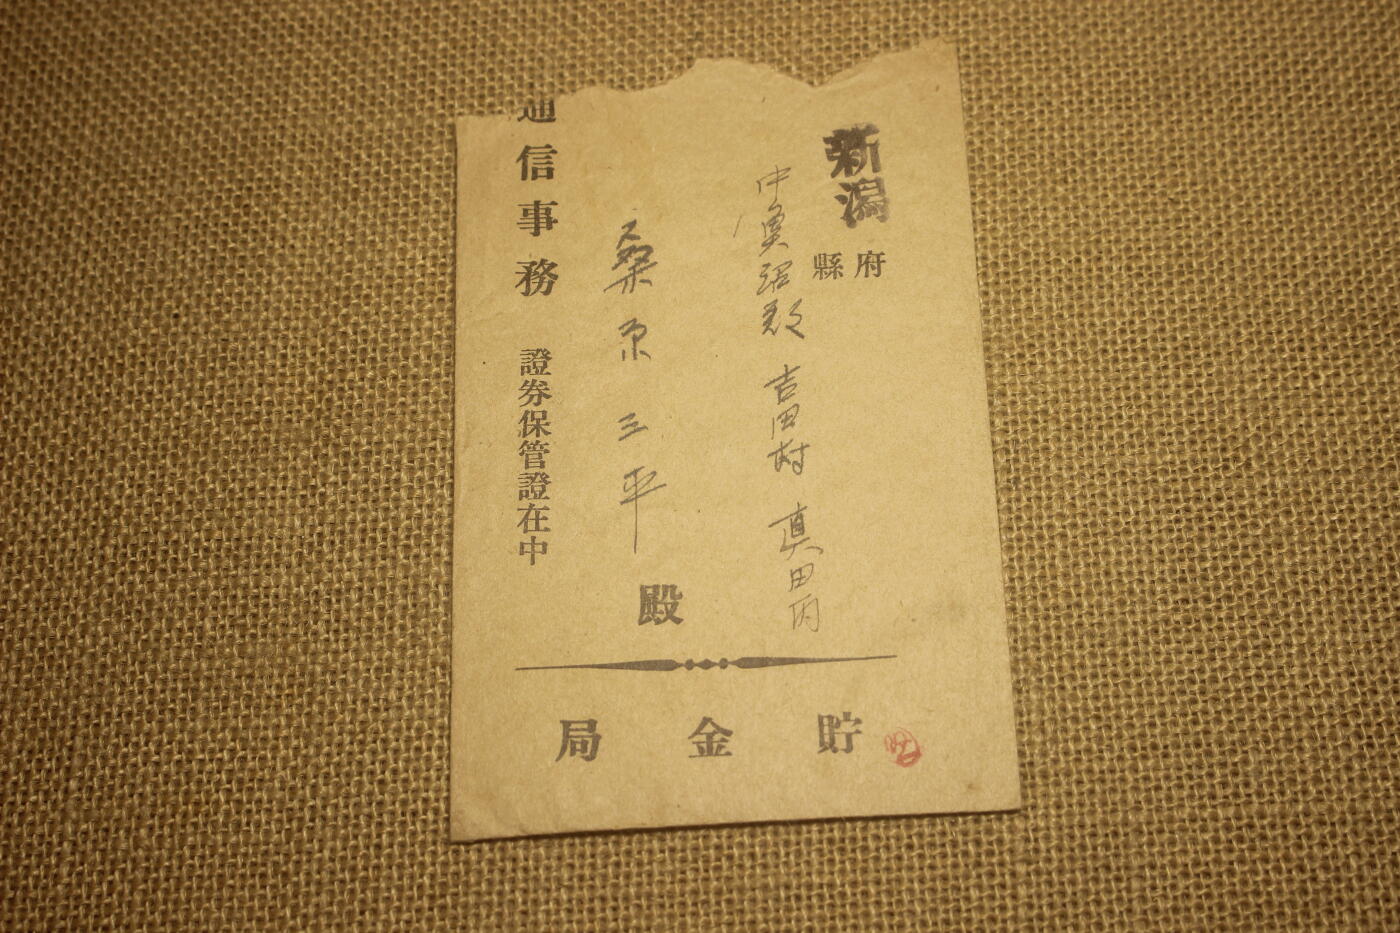 新潟
府縣
中魚沼郡 吉田村 眞田丙
桑原三平
殿
通信事務 證券保管證在中
貯金局